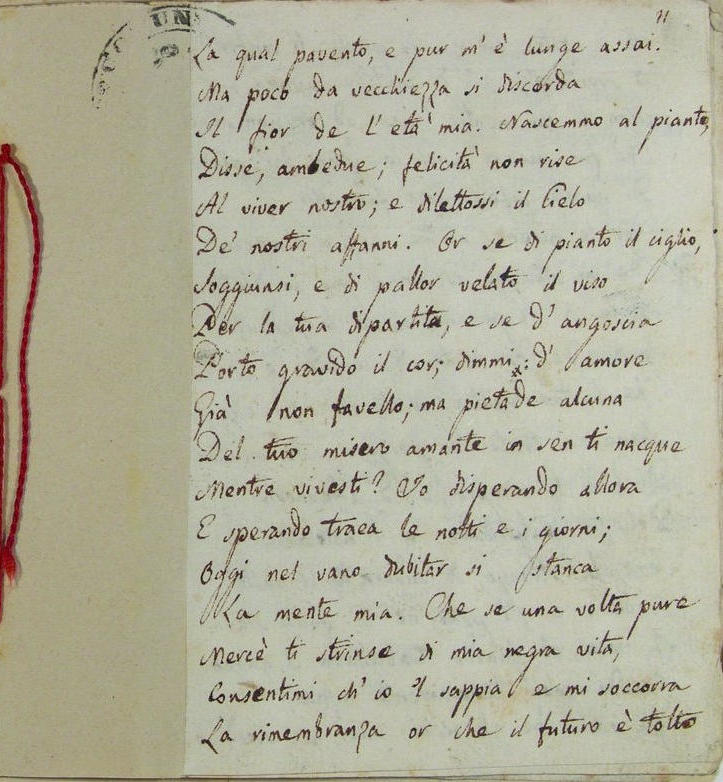 11
La qual pavento, e pur m'è lunge assai.
Ma poco da vecchiezza si discorda
Il fior de l'età mia. Nascemmo al pianto,
Disse, ambedue; felicità non rise
Al viver nostro; e dilettossi il Cielo
De' nostri affanni. Or se di pianto il ciglio,
Soggiunsi, e di pallor velato il viso
Per la tua dipartita, e se d'angoscia
Porto gravido il cor; dimmi: d'amore
Già non favello; ma pietade alcuna
Del tuo misero amante in sen ti nacque
Mentre vivesti? Io disperando allora
E sperando traea le notti e i giorni;
Oggi nel vano dubitar si stanca
La mente mia. Che se una volta pure
Mercè ti strinse di mia negra vita,
Consentimi ch'io 'l sappia e mi soccorra
La rimembranza or che il futuro è tolto